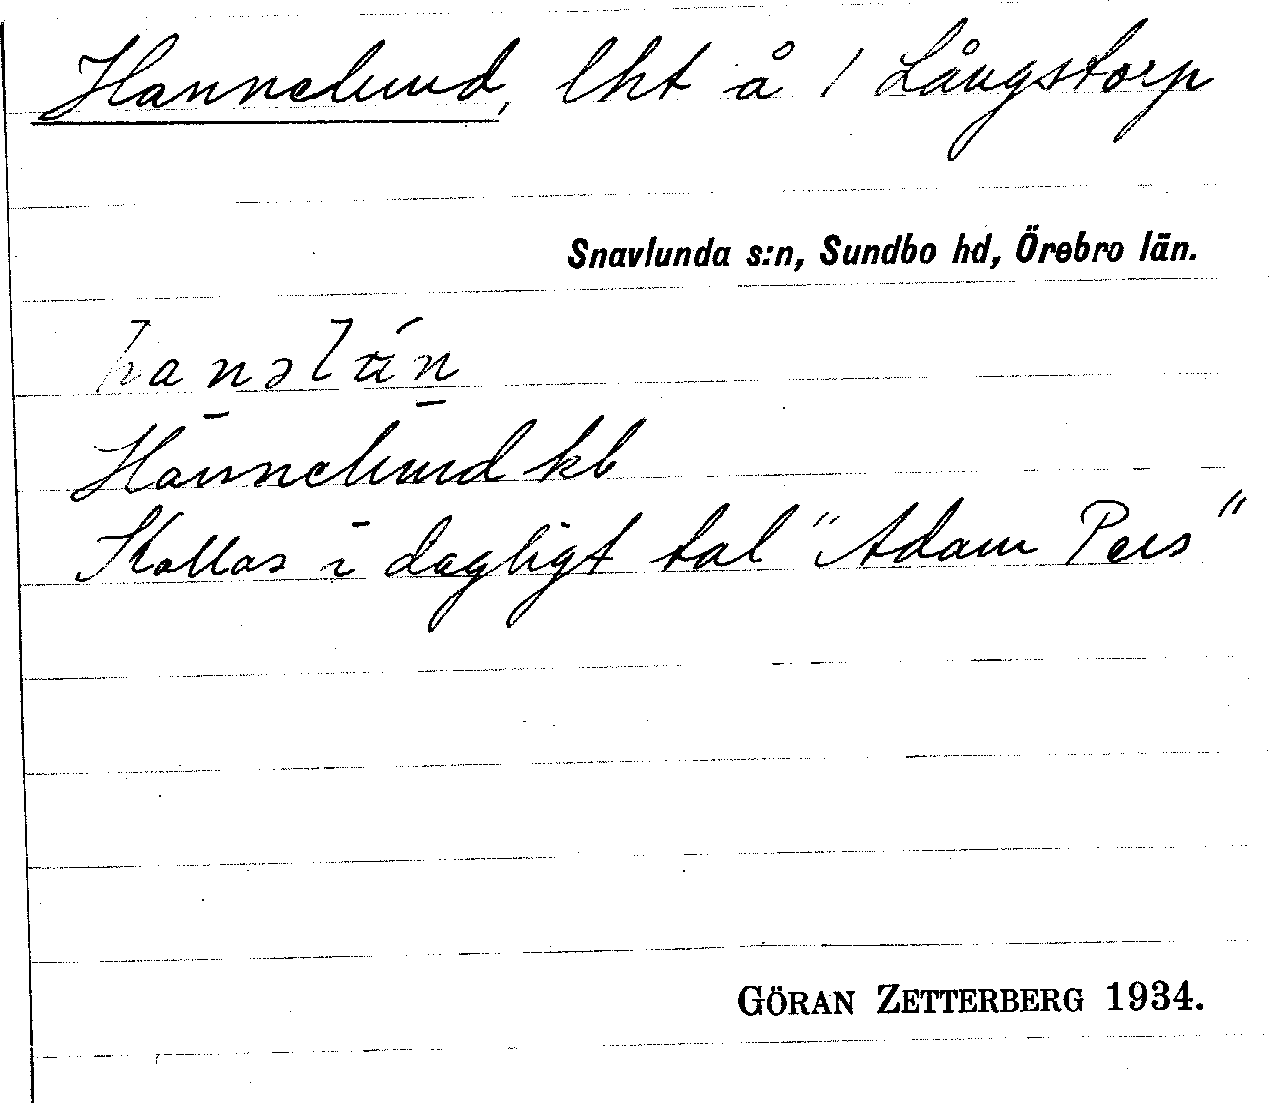 Hannelund, lht å 1 Långstorp
Snavlunda s:n, Sundbo hd, Örebro län.
Hannelund kb
Kallas i dagligt tal "Adam Pers"
GÖRAN ZETTERBERG 1934.